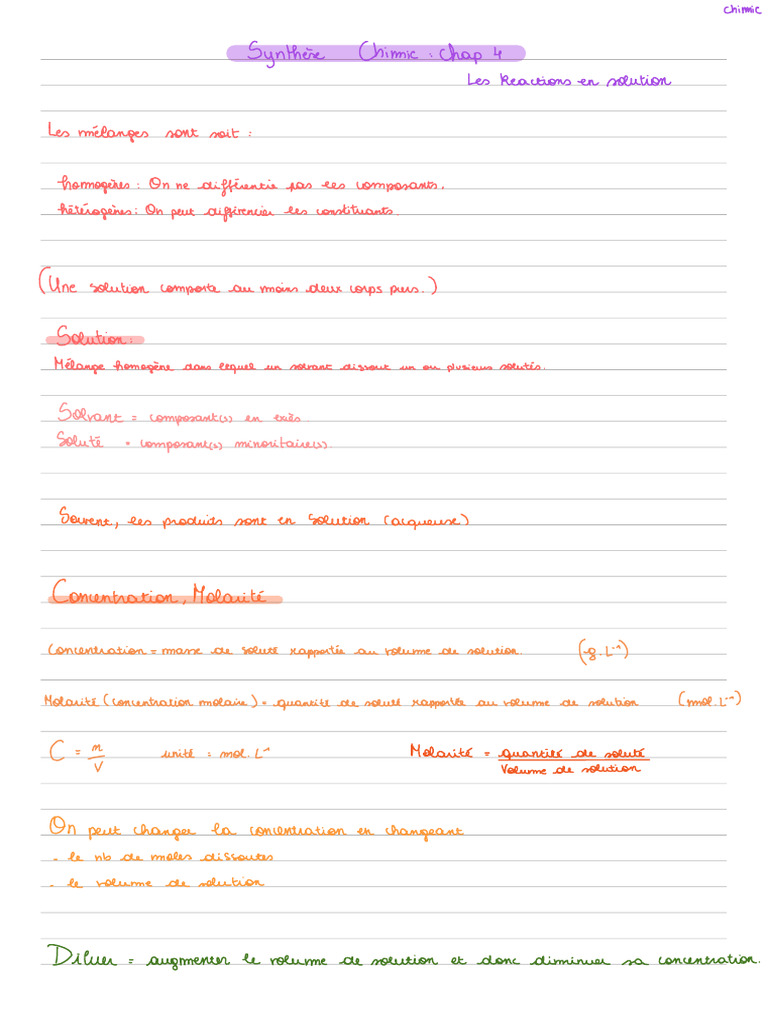 chimie
Synthèse Chimie : Chap 4
Les Reactions en solution
Les mélanges sont soit :
homogènes : On ne différentie pas les composants.
hétérogènes : On peut différencier les constituants.
(Une solution comporte au moins deux corps purs.)
Solution :
Mélange homogène dans lequel un solvant dissout un ou plusieurs solutés.
Solvant = composant(s) en excès.
Soluté = composant(s) minoritaire(s).
Souvent, les produits sont en solution (acqueuse)
Concentration, Molarité
Concentration = masse de soluté rapportée au volume de solution. (g.L⁻¹)
Molarité (concentration molaire) = quantité de soluté rapportée au volume de solution (mol.L⁻¹)
C = n/V unité : mol.L⁻¹ Molarité = quantité de soluté / Volume de solution
On peut changer la concentration en changeant
- le nb de moles dissoutes
- le volume de solution
Diluer = augmenter le volume de solution et donc diminuer sa concentration.